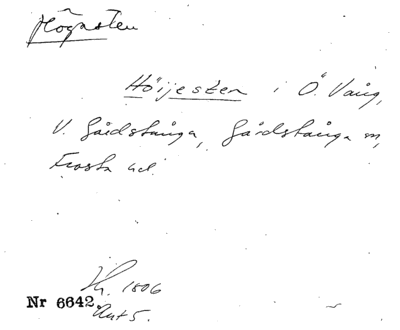 Högasten
Höijesten i Ö. Vång,
V. Gårdstånga, Gårdstånga sn,
Frosta hd.
1806
Nr 6642. Akt 5.